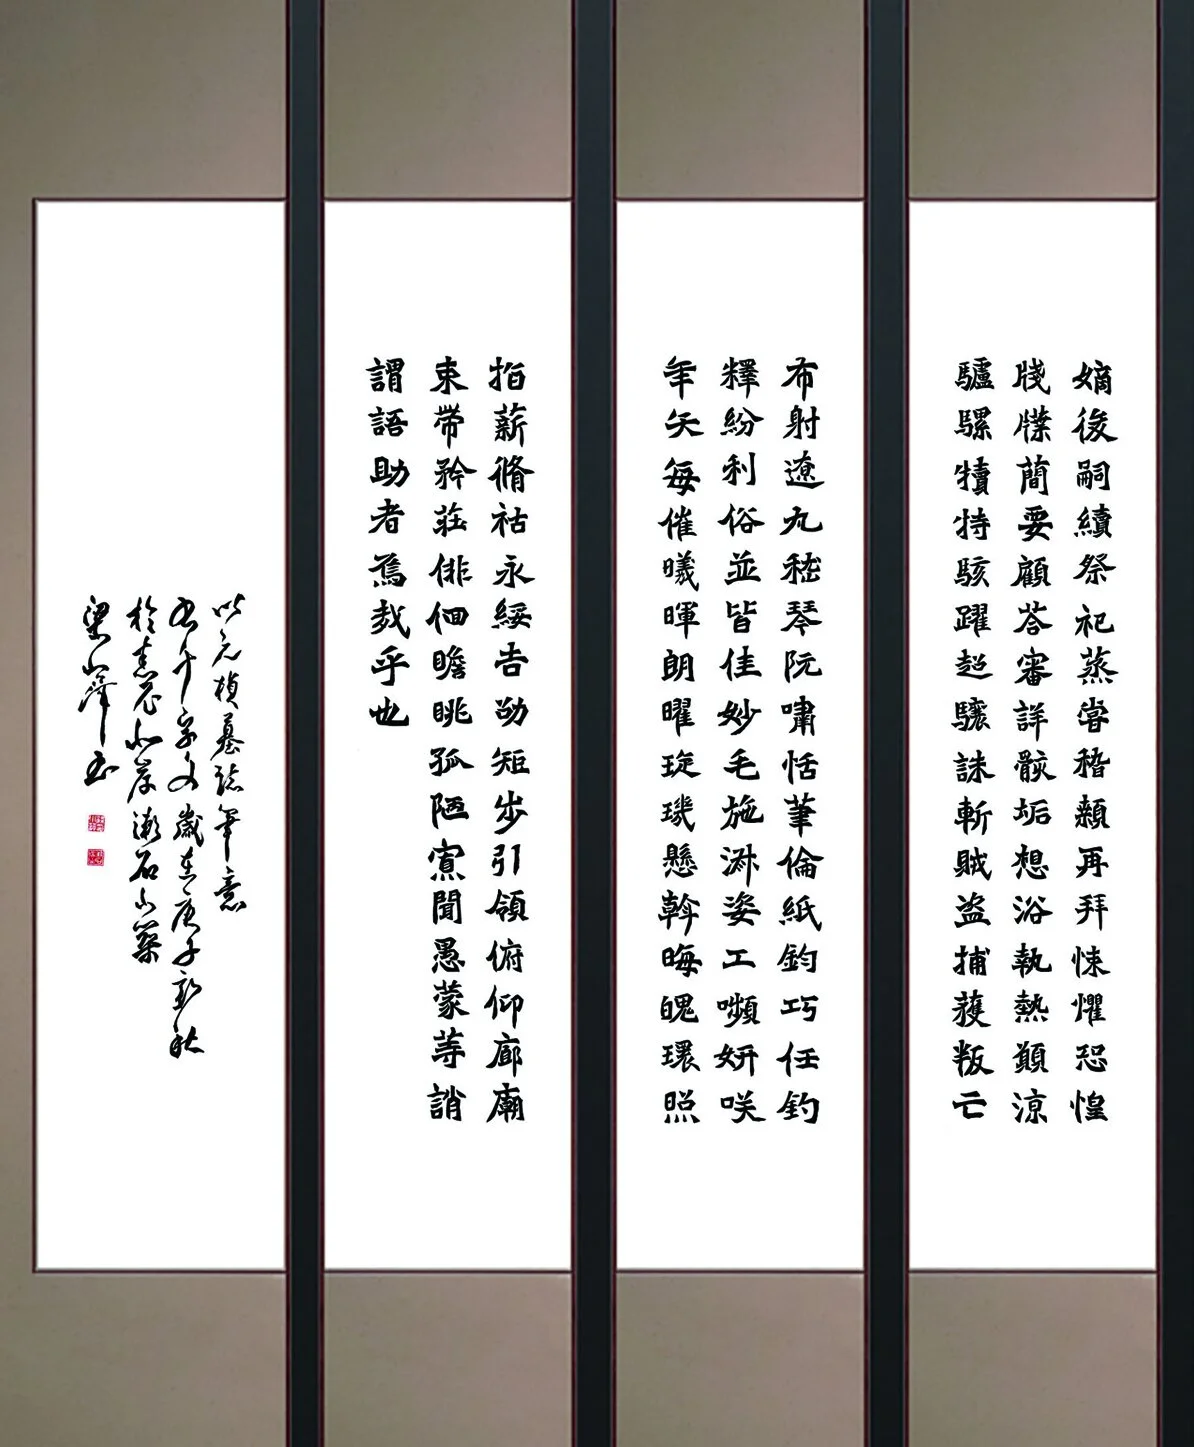 嫡後嗣續祭祀蒸嘗稽顙再拜悚懼恐惶
牋牒簡要顧荅審詳骸垢想浴執熱願涼
驢騾犢特駭躍超驤誅斬賊盜捕獲叛亡
布射遼丸嵇琴阮嘯恬筆倫紙鈞巧任釣
釋紛利俗並皆佳妙毛施淑姿工嚬妍咲
年矢每催曦暉朗曜琁璣懸斡晦魄環照
指薪脩祜永綏吉劭矩步引領俯仰廊廟
束帶矜莊徘徊瞻眺孤陋寡聞愚蒙等誚
謂語助者焉哉乎也
以元楨墓誌筆意
書千字文歲在庚子新秋
於北岸漱石小築
梁山澤書